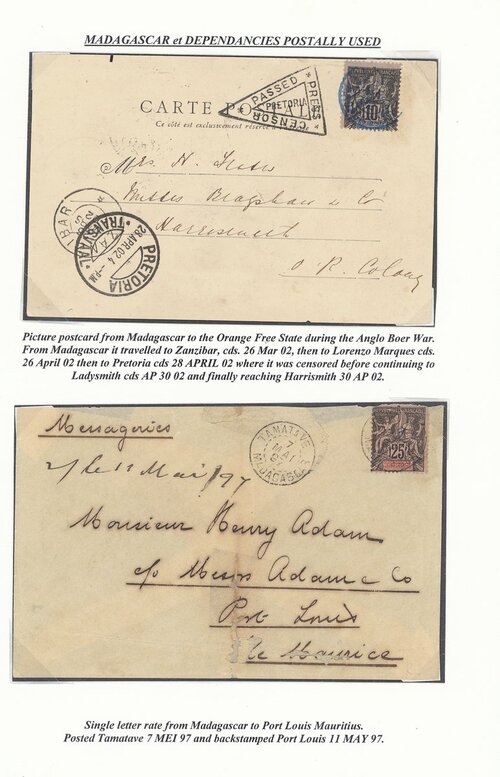 MADAGASCAR et DEPENDANCIES POSTALLY USED
CARTE POSTALE
Ce côté est exclusivement réservé à
PASSED
PRESS
CENSOR
PRETORIA
10
Mrs H.
Harrismith
O. R. Colony
BAR
PRETORIA
28 APR 02 4 - PM
TRANSVAAL
Picture postcard from Madagascar to the Orange Free State during the Anglo Boer War.
From Madagascar it travelled to Zanzibar, cds. 26 Mar 02, then to Lorenzo Marques cds.
26 April 02 then to Pretoria cds 28 APRIL 02 where it was censored before continuing to
Ladysmith cds AP 30 02 and finally reaching Harrismith 30 AP 02.
Messageries
TAMATAVE
7
MAI
MADAGASCAR
25
le 11 Mai 97
Monsieur Henry Adam
c/o Messrs Adam & Co
Port Louis
Ile Maurice
Single letter rate from Madagascar to Port Louis Mauritius.
Posted Tamatave 7 MEI 97 and backstamped Port Louis 11 MAY 97.